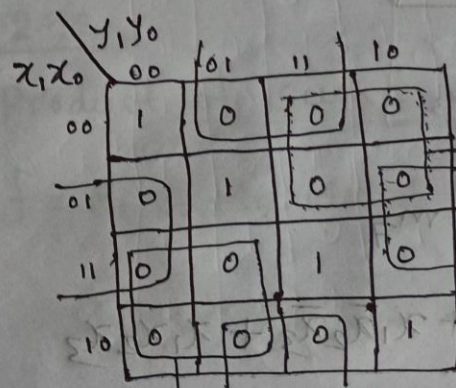 y₁y₀
x₁x₀ 00 01 11 10
00 1 0 0 0
01 0 1 0 0
11 0 0 1 0
10 0 0 0 1